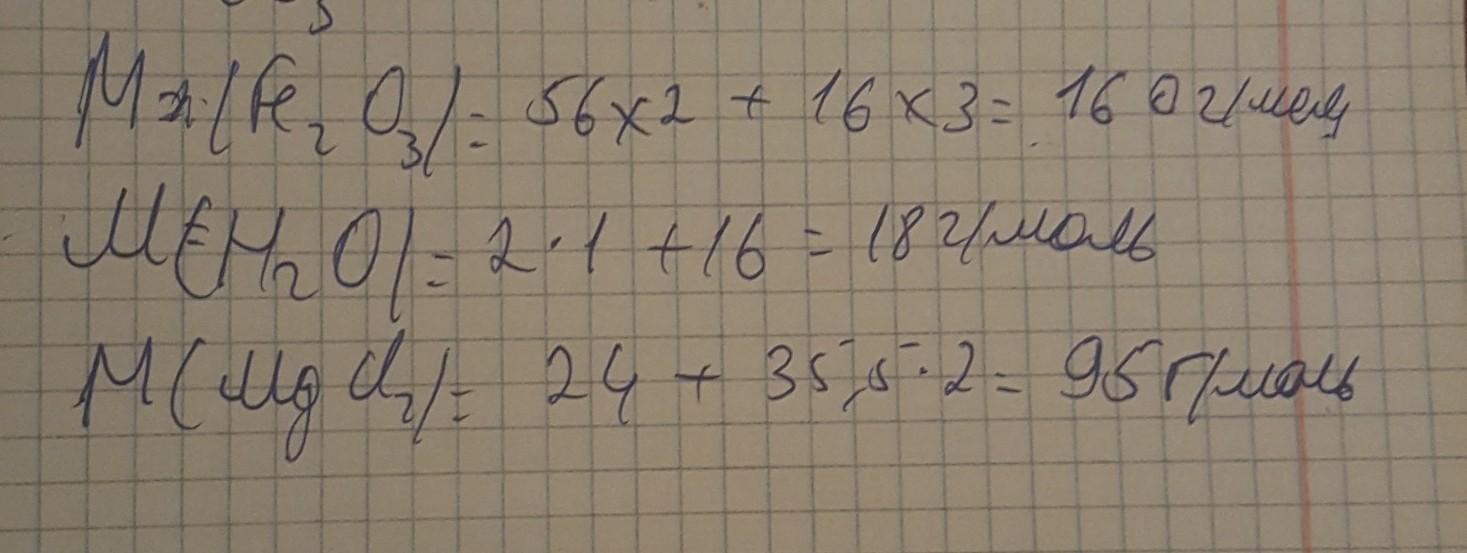 M(Fe₂O₃) = 56x2 + 16x3 = 160 г/мол
M(H₂O) = 2·1 + 16 = 18 г/моль
M(MgCl₂) = 24 + 35,5·2 = 95 г/моль